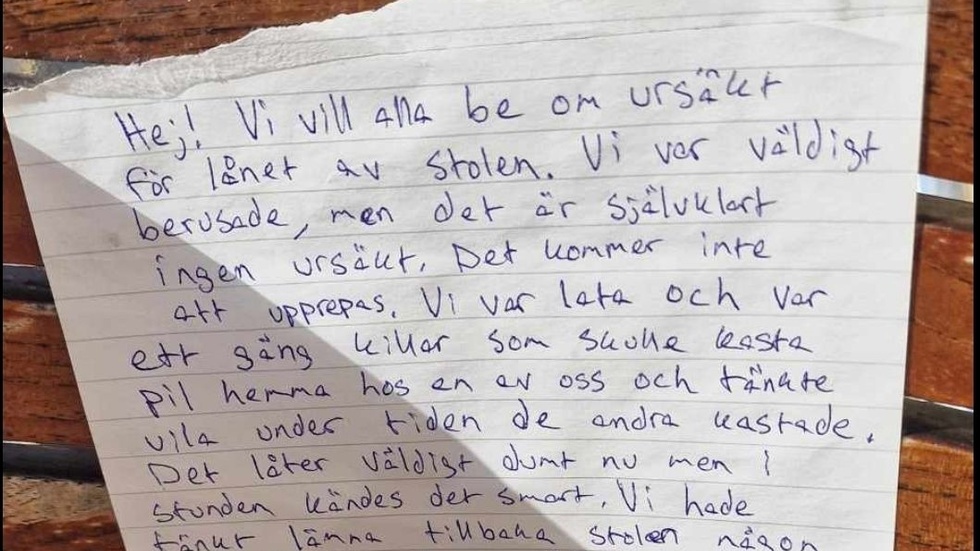 Hej! Vi vill alla be om ursäkt
för lånet av stolen. Vi var väldigt
berusade, men det är självklart
ingen ursäkt. Det kommer inte
att upprepas. Vi var lata och var
ett gäng killar som skulle kasta
pil hemma hos en av oss och tänkte
vila under tiden de andra kastade.
Det låter väldigt dumt nu men i
stunden kändes det smart. Vi hade
tänkt lämna tillbaka stolen någon